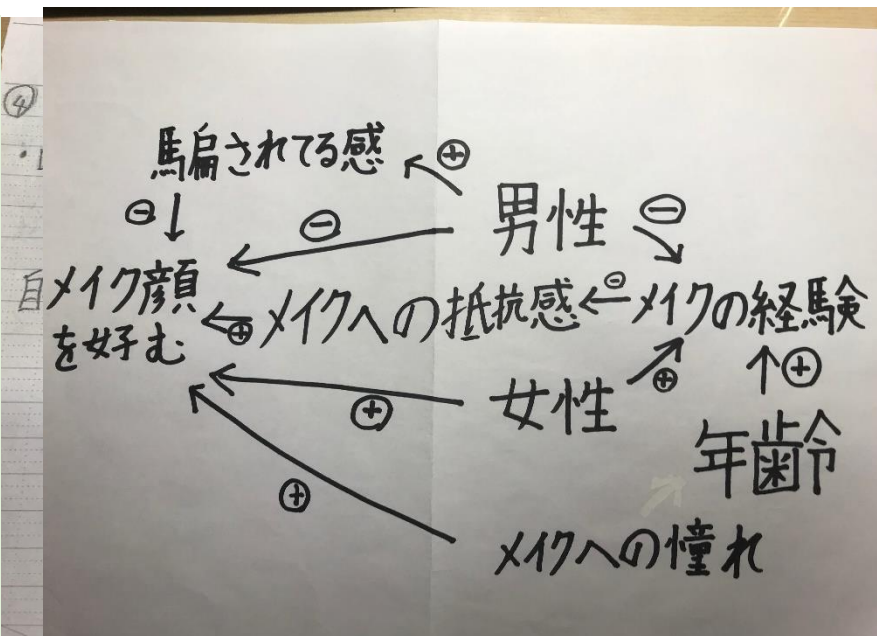 ④
騙されてる感
⊕
⊖
⊖
男性
⊖
自
メイク顔
を好む
⊕
メイクへの抵抗感
⊖
メイクの経験
⊕
女性
⊕
⊕
年齢
⊕
メイクへの憧れ